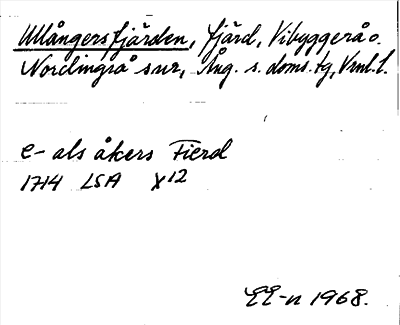 Ullångersfjärden, fjärd, Vibyggerå o.
Nordingrå snr, Ång. s. doms. tg, Vnl. l.
e- als åkers Fierd
1714 LSA X12
EE-n 1968.